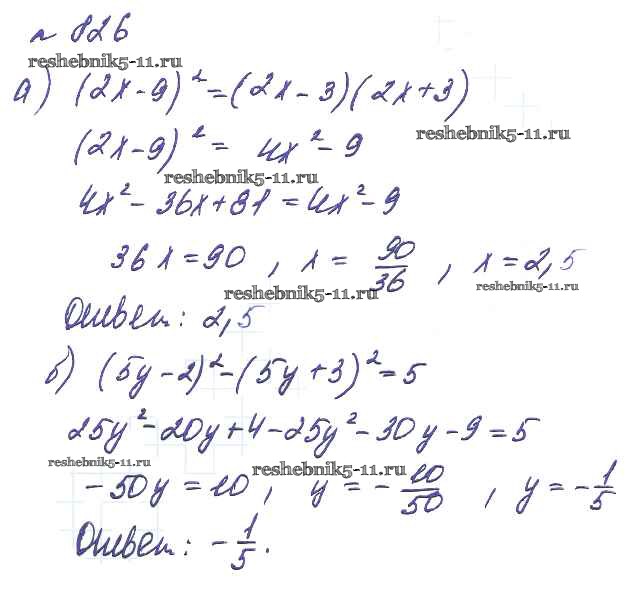 № 826
reshebnik5-11.ru
а) (2x-9)² = (2x-3)(2x+3)
reshebnik5-11.ru
(2x-9)² = 4x²-9
reshebnik5-11.ru
4x² - 36x + 81 = 4x² - 9
36x = 90 , x = 90/36 , x = 2,5
reshebnik5-11.ru
reshebnik5-11.ru
Ответ: 2,5
б) (5y-2)² - (5y+3)² = 5
25y² - 20y + 4 - 25y² - 30y - 9 = 5
reshebnik5-11.ru
reshebnik5-11.ru
-50y = 10 , y = -10/50 , y = -1/5
Ответ: -1/5.